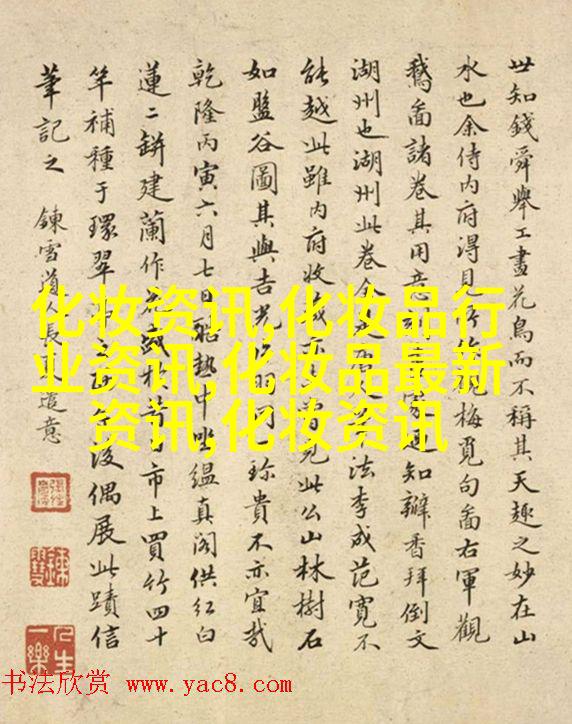 世知錢舜舉工畫花鳥而不稱其天趣之妙在山
水也余侍内府得見梅覓句畵右軍觀
鵝畵諸卷其用意知瓣香拜倒文
湖州也湖州此卷余法李成范寬不
能越此雖内府收見此公山林樹石
如盤谷圖其與吉珍貴不亦宜哉
乾隆丙寅六月七日酷熱中坐緼真阁供红白
蓮二缾建蘭作市上買竹四十
竿補種于環翠後偶展此蹟信
筆記之 鍊雪道人長遣意
化妆资讯,化妆品行
业资讯,化妆品最新
资讯,化妆资讯
人生一樂
书法欣赏 www.yac8.com